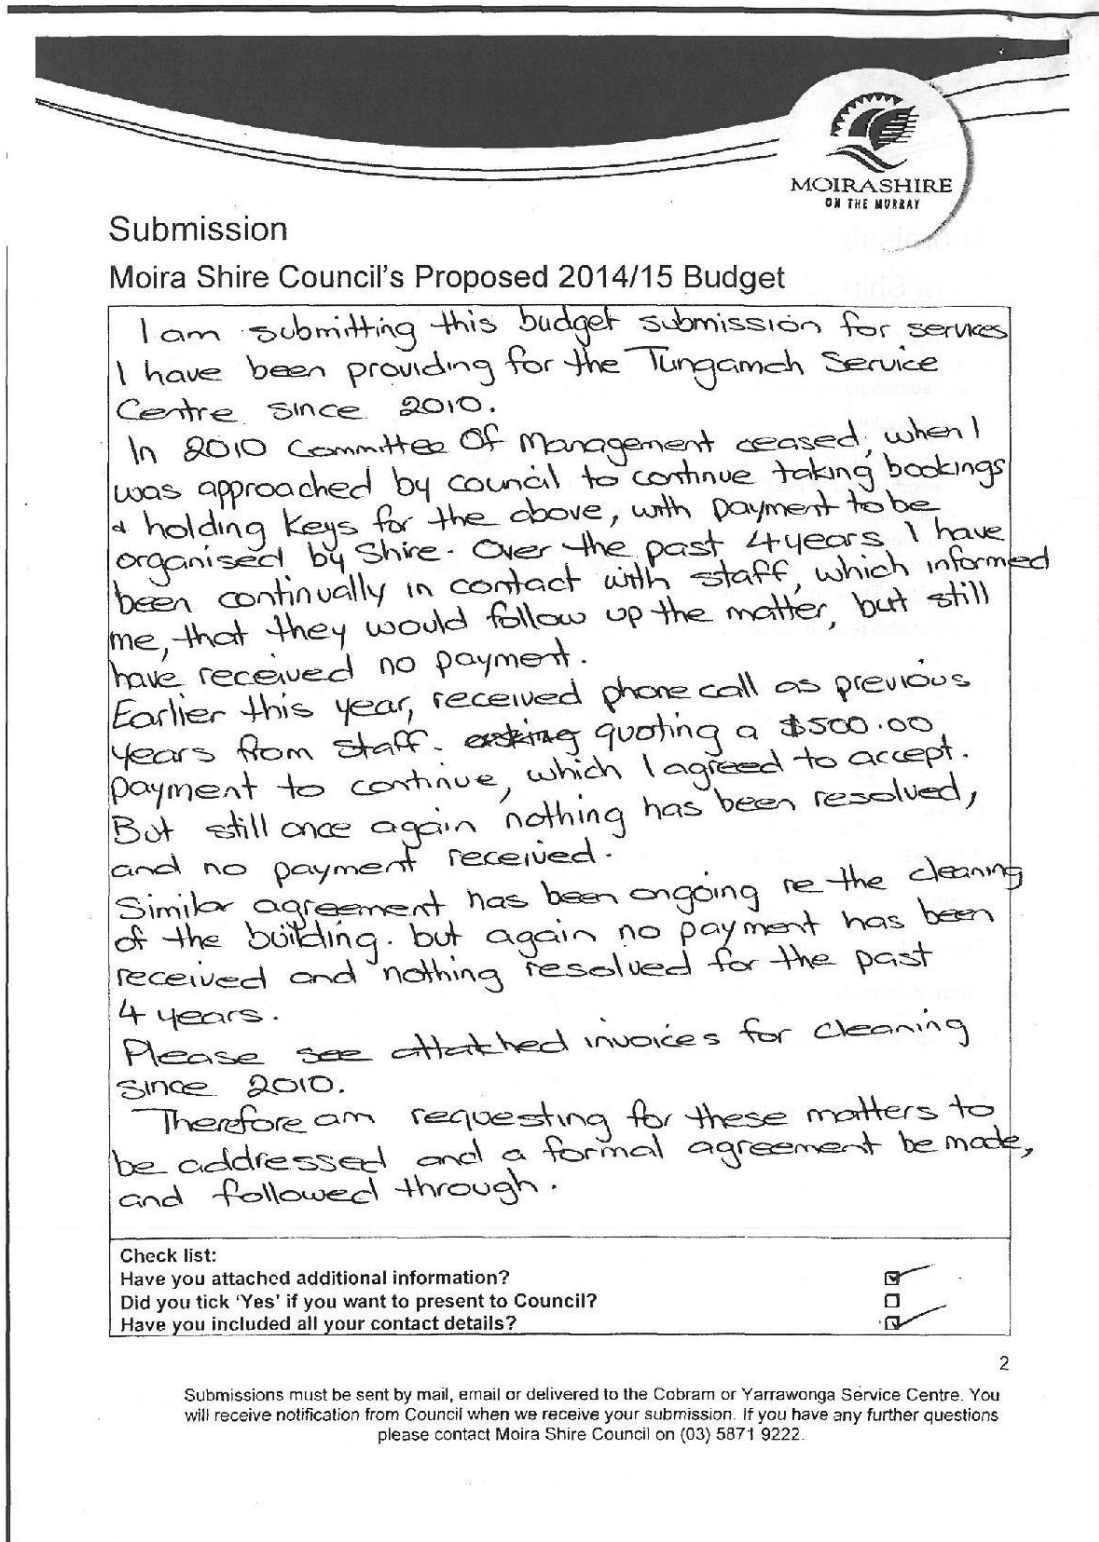 MOIRASHIRE
ON THE MURRAY
Submission
Moira Shire Council's Proposed 2014/15 Budget
I am submitting this budget submission for services
I have been providing for the Tungamah Service
Centre since 2010.
In 2010 Committee Of Management ceased, when I
was approached by council to continue taking bookings
& holding keys for the above, with payment to be
organised by Shire. Over the past 4 years I have
been continually in contact with staff, which informed
me, that they would follow up the matter, but still
have received no payment.
Earlier this year, received phone call as previous
years from staff. asking quoting a $500.00
payment to continue, which I agreed to accept.
But still once again nothing has been resolved,
and no payment received.
Similar agreement has been ongoing re the cleaning
of the building. but again no payment has been
received and nothing resolved for the past
4 years.
Please see attatched invoices for cleaning
since 2010.
Therefore am requesting for these matters to
be addressed and a formal agreement be made,
and followed through.
Check list:
Have you attached additional information?
Did you tick 'Yes' if you want to present to Council?
Have you included all your contact details?
2
Submissions must be sent by mail, email or delivered to the Cobram or Yarrawonga Service Centre. You
will receive notification from Council when we receive your submission. If you have any further questions
please contact Moira Shire Council on (03) 5871 9222.